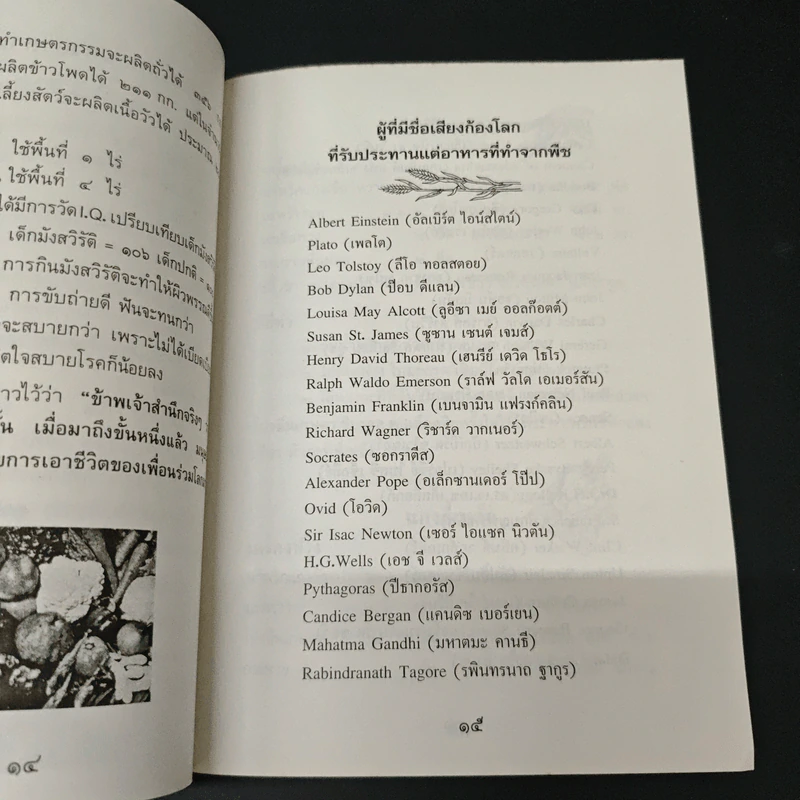 ทำเกษตรกรรมจะผลิตถั่วได้ ๓๕๖
ผลิตข้าวโพดได้ ๒๑๑ กก. แต่ในจำนวน
เลี้ยงสัตว์จะผลิตเนื้อวัวได้ ประมาณ
ใช้พื้นที่ ๑ ไร่
ใช้พื้นที่ ๔ ไร่
ได้มีการวัด I.Q. เปรียบเทียบเด็กมังสวิรัติ
เด็กมังสวิรัติ = ๑๐๖ เด็กปกติ =
การกินมังสวิรัติจะทำให้ผิวพรรณ
การขับถ่ายดี ฟันจะทนกว่า
จะสบายกว่า เพราะไม่ได้เบียดเบียน
ตใจสบายโรคก็น้อยลง
าวไว้ว่า "ข้าพเจ้าสำนึกจริงๆ
ั้น เมื่อมาถึงขั้นหนึ่งแล้ว
ยการเอาชีวิตของเพื่อนร่วมโลก
๑๔
ผู้ที่มีชื่อเสียงก้องโลก
ที่รับประทานแต่อาหารที่ทำจากพืช
Albert Einstein (อัลเบิร์ต ไอน์สไตน์)
Plato (เพลโต)
Leo Tolstoy (ลีโอ ทอลสตอย)
Bob Dylan (ป๊อบ ดีแลน)
Louisa May Alcott (ลูอีซา เมย์ ออลก๊อตต์)
Susan St. James (ซูซาน เซนต์ เจมส์)
Henry David Thoreau (เฮนรีย์ เดวิด โธโร)
Ralph Waldo Emerson (ราล์ฟ วัลโด เอเมอร์สัน)
Benjamin Franklin (เบนจามิน แฟรงก์คลิน)
Richard Wagner (ริชาร์ด วากเนอร์)
Socrates (ซอกราตีส)
Alexander Pope (อเล็กซานเดอร์ โป๊ป)
Ovid (โอวิด)
Sir Isac Newton (เซอร์ ไอแซค นิวตัน)
H.G.Wells (เอช จี เวลส์)
Pythagoras (ปีธากอรัส)
Candice Bergan (แคนดิซ เบอร์เยน)
Mahatma Gandhi (มหาตมะ คานธี)
Rabindranath Tagore (รพินทรนาถ ฐากูร)
๑๕